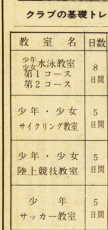 クラブの基礎トレ
教室名 日数
少年少女水泳教室
第1コース
第2コース
8日間
少年・少女
サイクリング教室
5日間
少年・少女
陸上競技教室
5日間
少年
サッカー教室
5日間